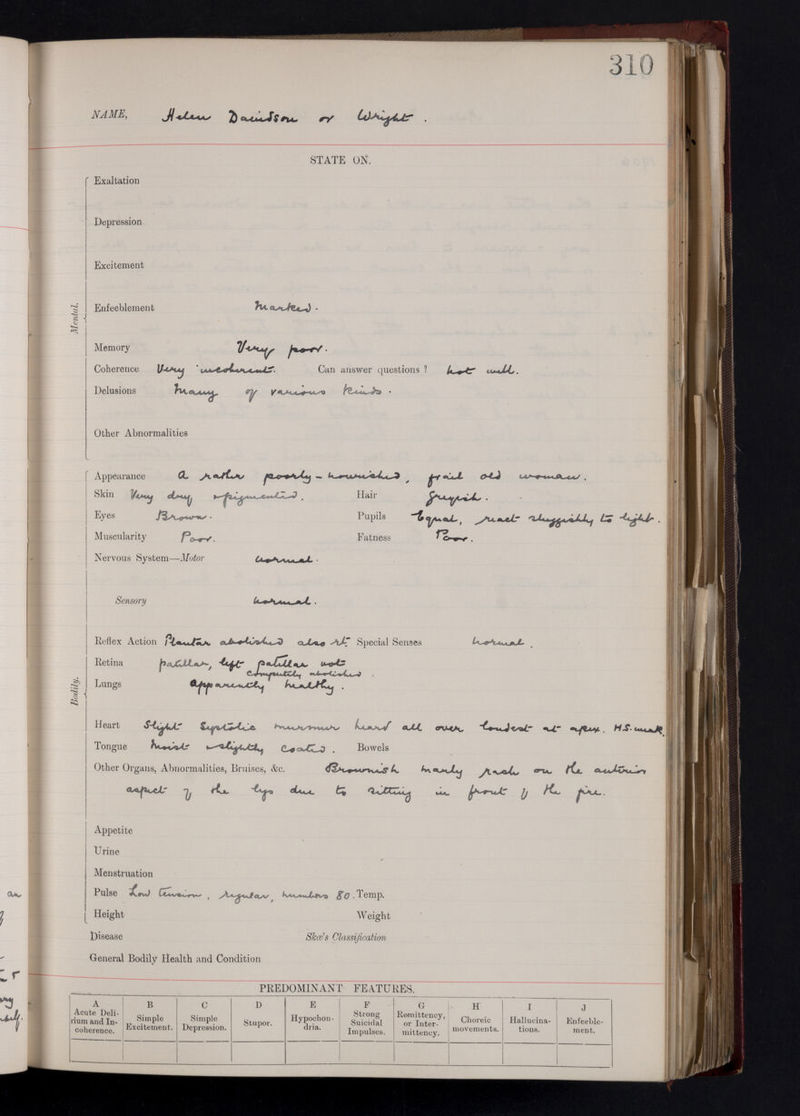 310
NAME, Helen Davidson or Wright.
STATE ON.
Mental.
Exaltation
Depression
Excitement
Enfeeblement Marked.
Memory Very poor.
Coherence Very incoherent. Can answer questions? not well.
Delusions Many of various kinds.
Other Abnormalities
Bodily.
Appearance A rather poorly-nourished, frail old woman.
Skin Very dry, pigmented. Hair Greyish.
Eyes Brown. Pupils Equal, react sluggishly to light.
Muscularity Poor. Fatness Poor.
Nervous System—Motor Normal.
Sensory Normal.
Reflex Action Plantar abolished also rt. Special Senses Normal.
Retina patellar, left patellar not
completely abolished.
Lungs Apparently healthy.
Heart Slight Systolic murmur heard all over loudest at apex. H.S. weak.
Tongue Moist slightly coated. Bowels
Other Organs, Abnormalities, Bruises, &c. Brownish rash on the anterior
aspect of the legs due to sitting in front of the fire.
Appetite
Urine
Menstruation
Pulse Low tension, regular, numbers 80. Temp.
Height Weight
Disease Skæ's Classification
General Bodily Health and Condition
PREDOMINANT FEATURES.
A B C D E F G H I J
Acute Delirium and Incoherence. Simple Excitement. Simple Depression. Stupor. Hypochondria. Strong Suicidal Impulses. Remittency, or Intermittency. Choreic movements. Hallucinations. Enfeeblement.